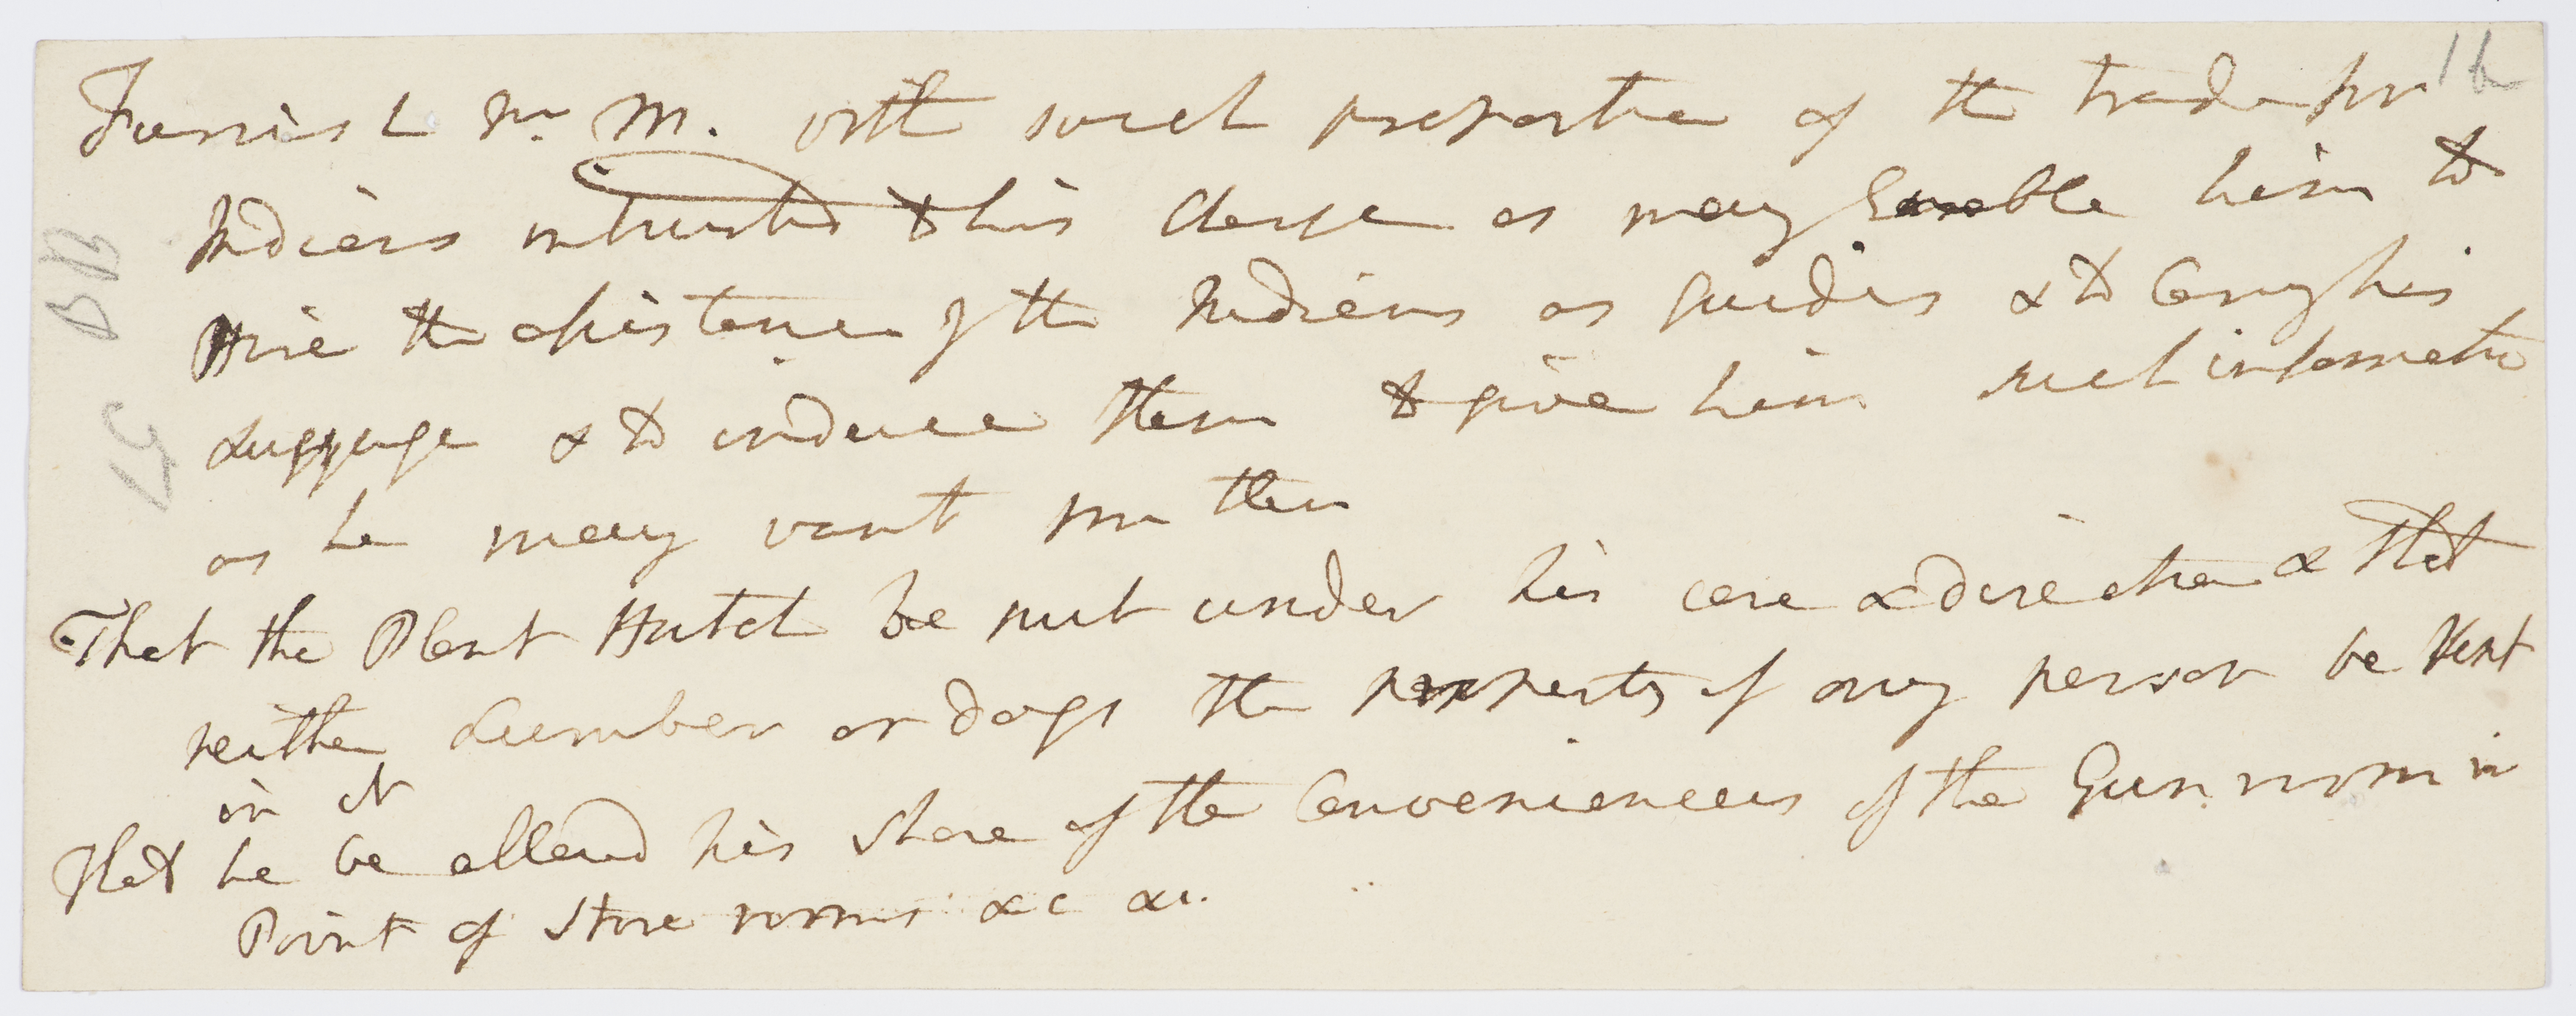 Furnish Mr M. with such proportion of the trade for
Indians intrusted to his charge as may Enable him to
Hire the assistance of the Indians as guides & to Carry his
Luggage & to induce them to give him such informatio
as he may want from them
That the Plant Hutch be put under his care & direction & that
neither Lumber or dogs the property of any person be Kept
in it
That he be allowd his share of the Conveniences of the Gun room in
Point of Store rooms &c &c.